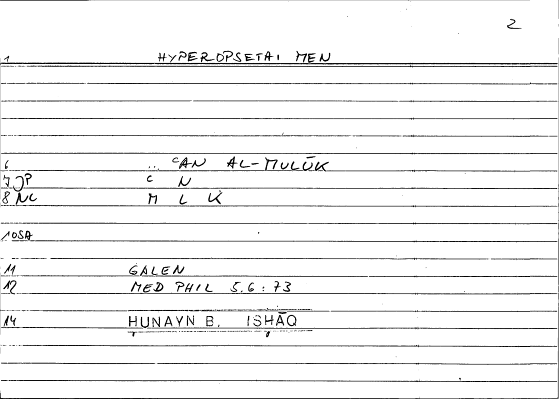 2
1 HYPEROPSETAI MEN
6 .. ᶜAN AL-MULŪK
7 JP ᶜ N
8 NL M L K
10SA
11 GALEN
12 MED PHIL 5.6:73
14 ḤUNAYN B. ISḤĀQ